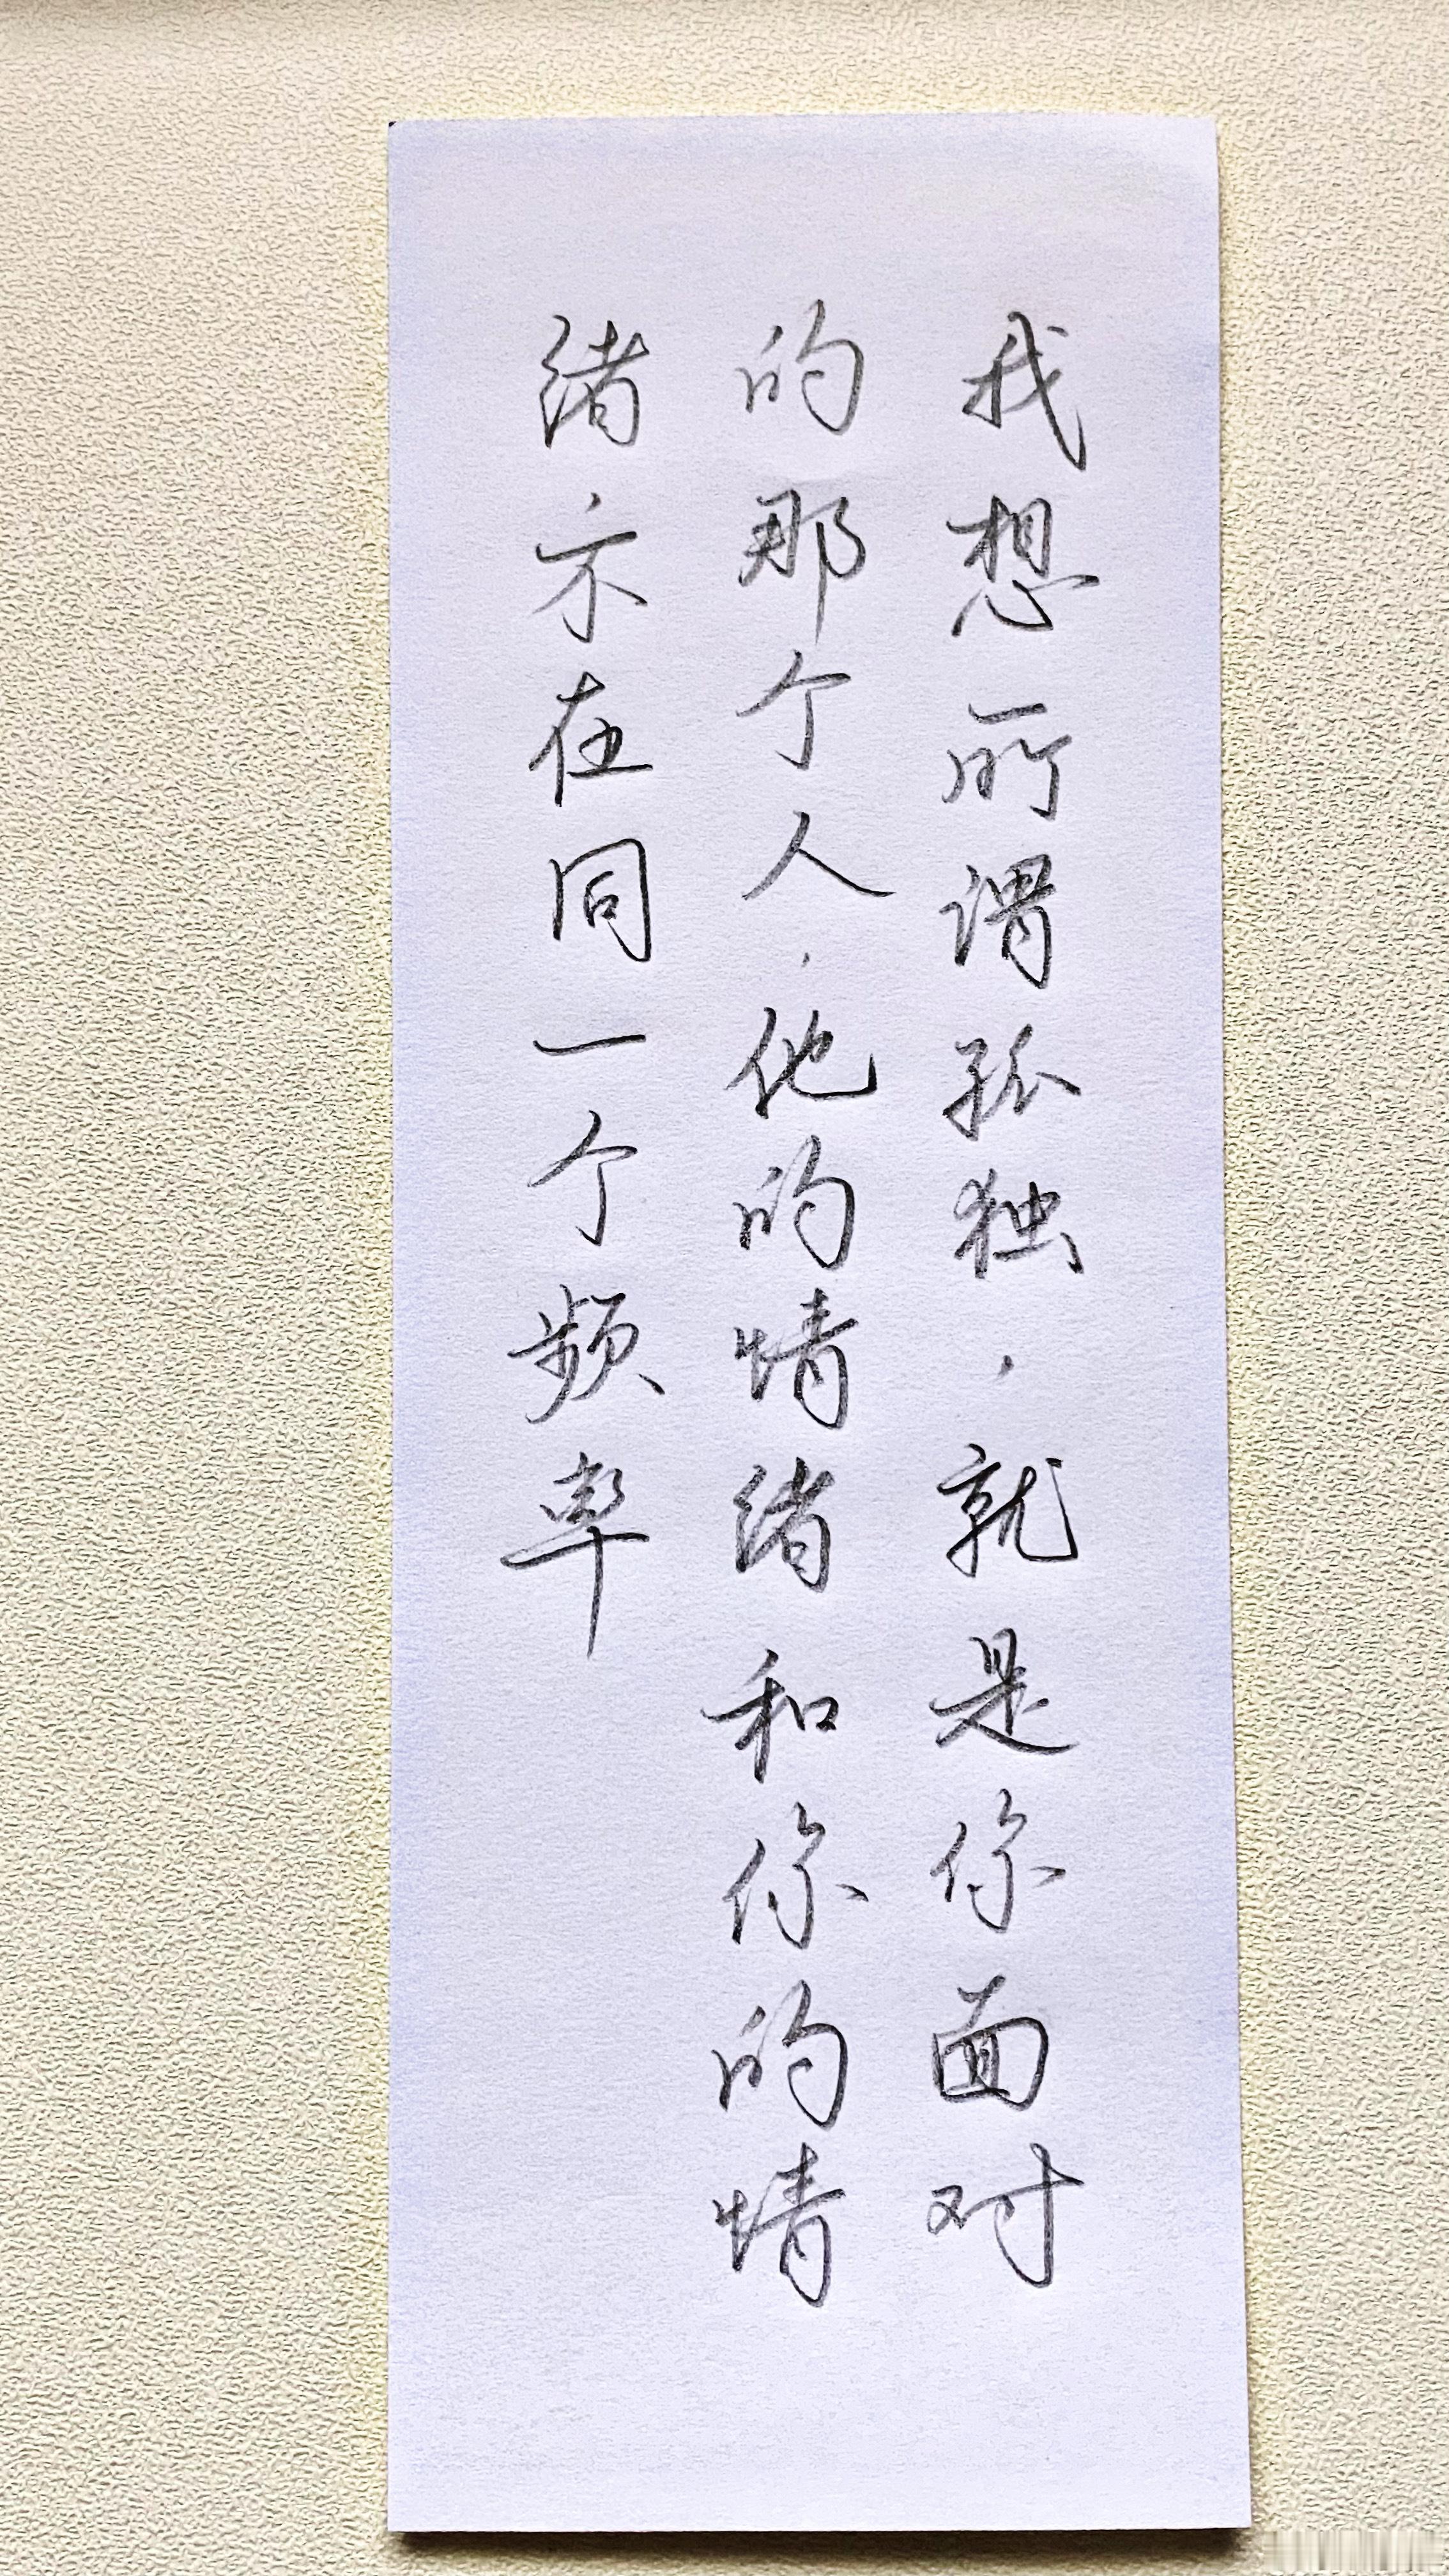 我想所谓孤独，就是你面对
的那个人，他的情绪和你的情
绪不在同一个频率